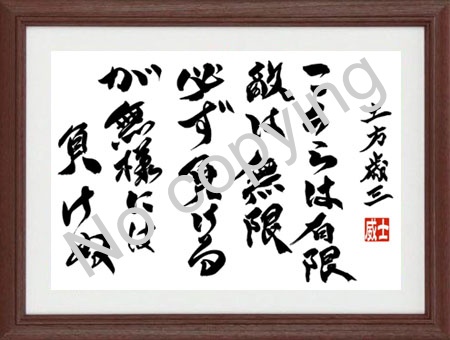 土方歳三
こちらは有限
敵は無限
必ず負ける
が無様には
負けぬ
威士
No copying